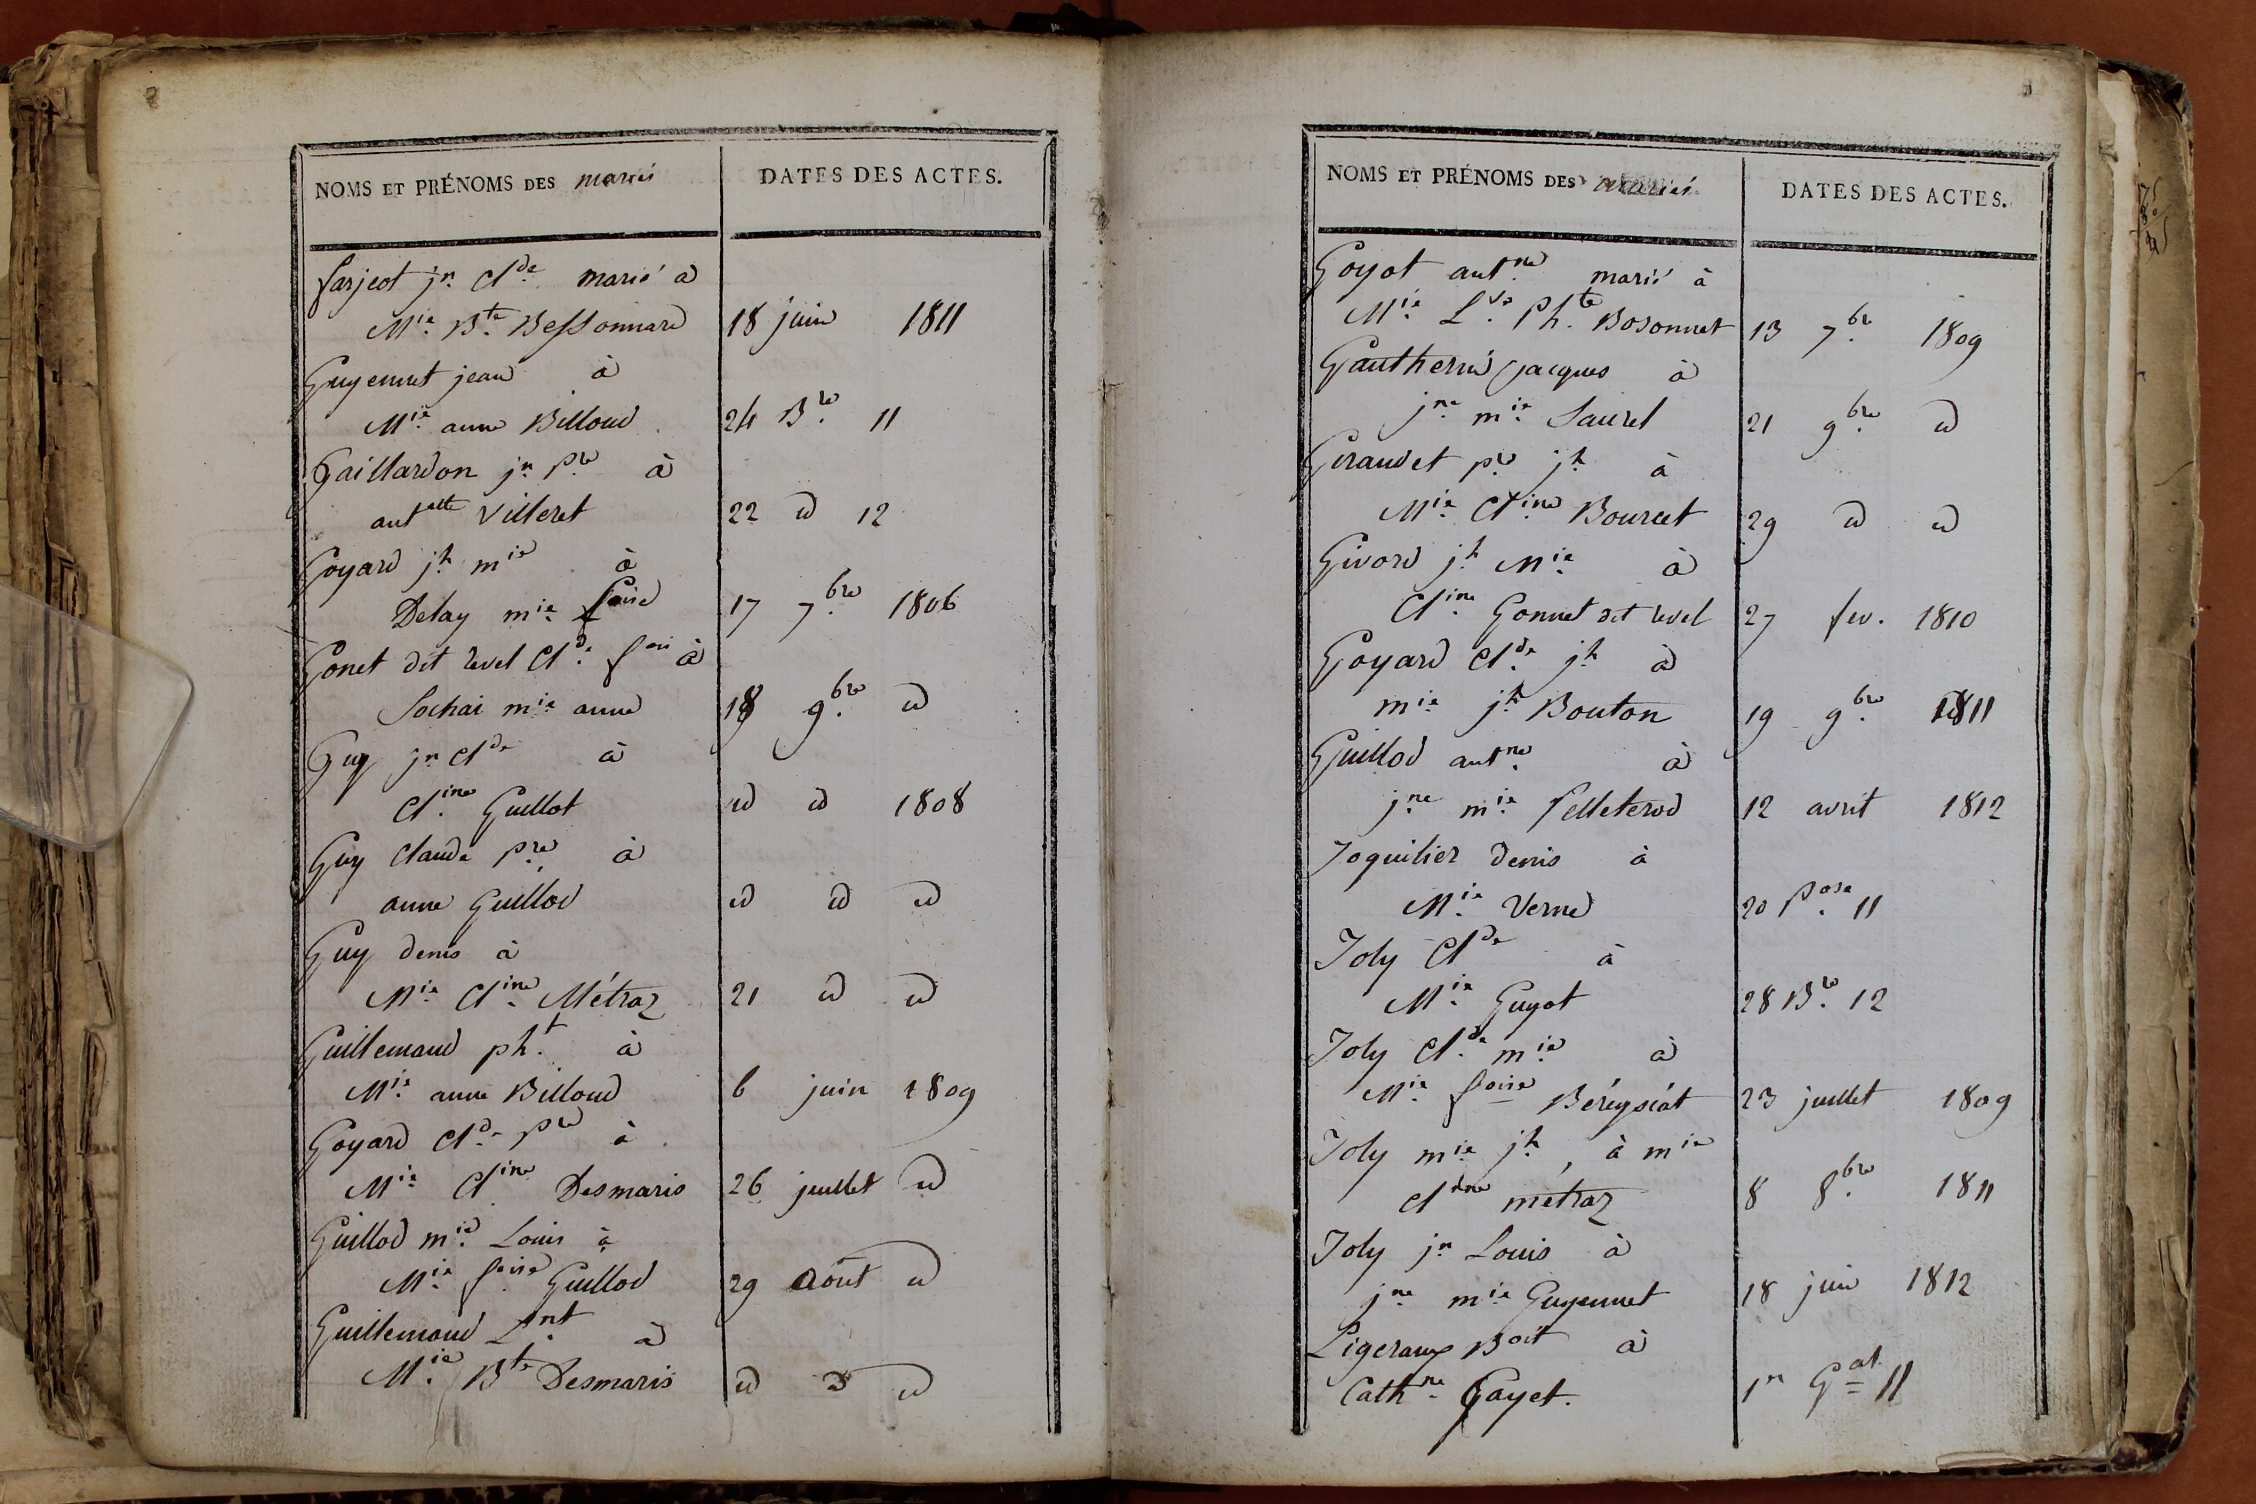 NOMS ET PRÉNOMS DES mariés DATES DES ACTES.
farjeot jn. Clde. marié à
Mie. Bte. Bessonnard 18 juin 1811
Guyennet jean à
Mie. anne Billoud 24 Bre. 11
Gaillardon jn. Pre. à
antette Villeret 22 id 12
Goyard jh. mie à
Delay mie. foise 17 7bre. 1806
Gonet dit revel Clde. foi à
Sochai mie. anne 18 9bre. id
Guy jn. Clde à
Cline. Guillot id id 1808
Guy Claude pre. à
anne Guillod id id id
Guy denis à
Mie. Cline. Métraz 21 id id
Guillemaud pht. à
Mie. anne Billoud 6 juin 1809
Goyard Clde. Pre à
Mie. Cline. Desmaris 26 juillet id
Guillod mie. Louis à
Mie. foise. Guillod 29 Aout id
Guillemaud Lnt. à
Mie. Bte Desmaris id id id
NOMS ET PRÉNOMS DES mariés DATES DES ACTES.
Goyot antne. marié à
Mie. Lse. Phte. Bosonnet 13 7br. 1809
Gautherin jacques à
jne. mie. Saurel 21 9bre. id
Giraudet pre. jh. à
Mie. Cline. Bourcet 29 id id
Givord jh. Mie. à
Cline. Gonnet dit revel 27 fev. 1810
Goyard Clde. jh. à
mie. jh. Bouton 19 9bre. 1811
Guillod antne. à
jne. mie. Pelleterod 12 avril 1812
Joguilier Denis à
Mie. Verne 20 Pose. 11
Joly Clde à
Mie. Guyot 28 Bre. 12
Joly Clde. mie. à
Mie. foise Béréysiat 23 juillet 1809
Joly mie. jh., à mie
Cldne métraz 8 8bre. 1811
Joly jn. Louis à
jne. mie. Guyennet 18 juin 1812
Ligeraux Boit à
Cathne. Gayet. 1er Gal 11